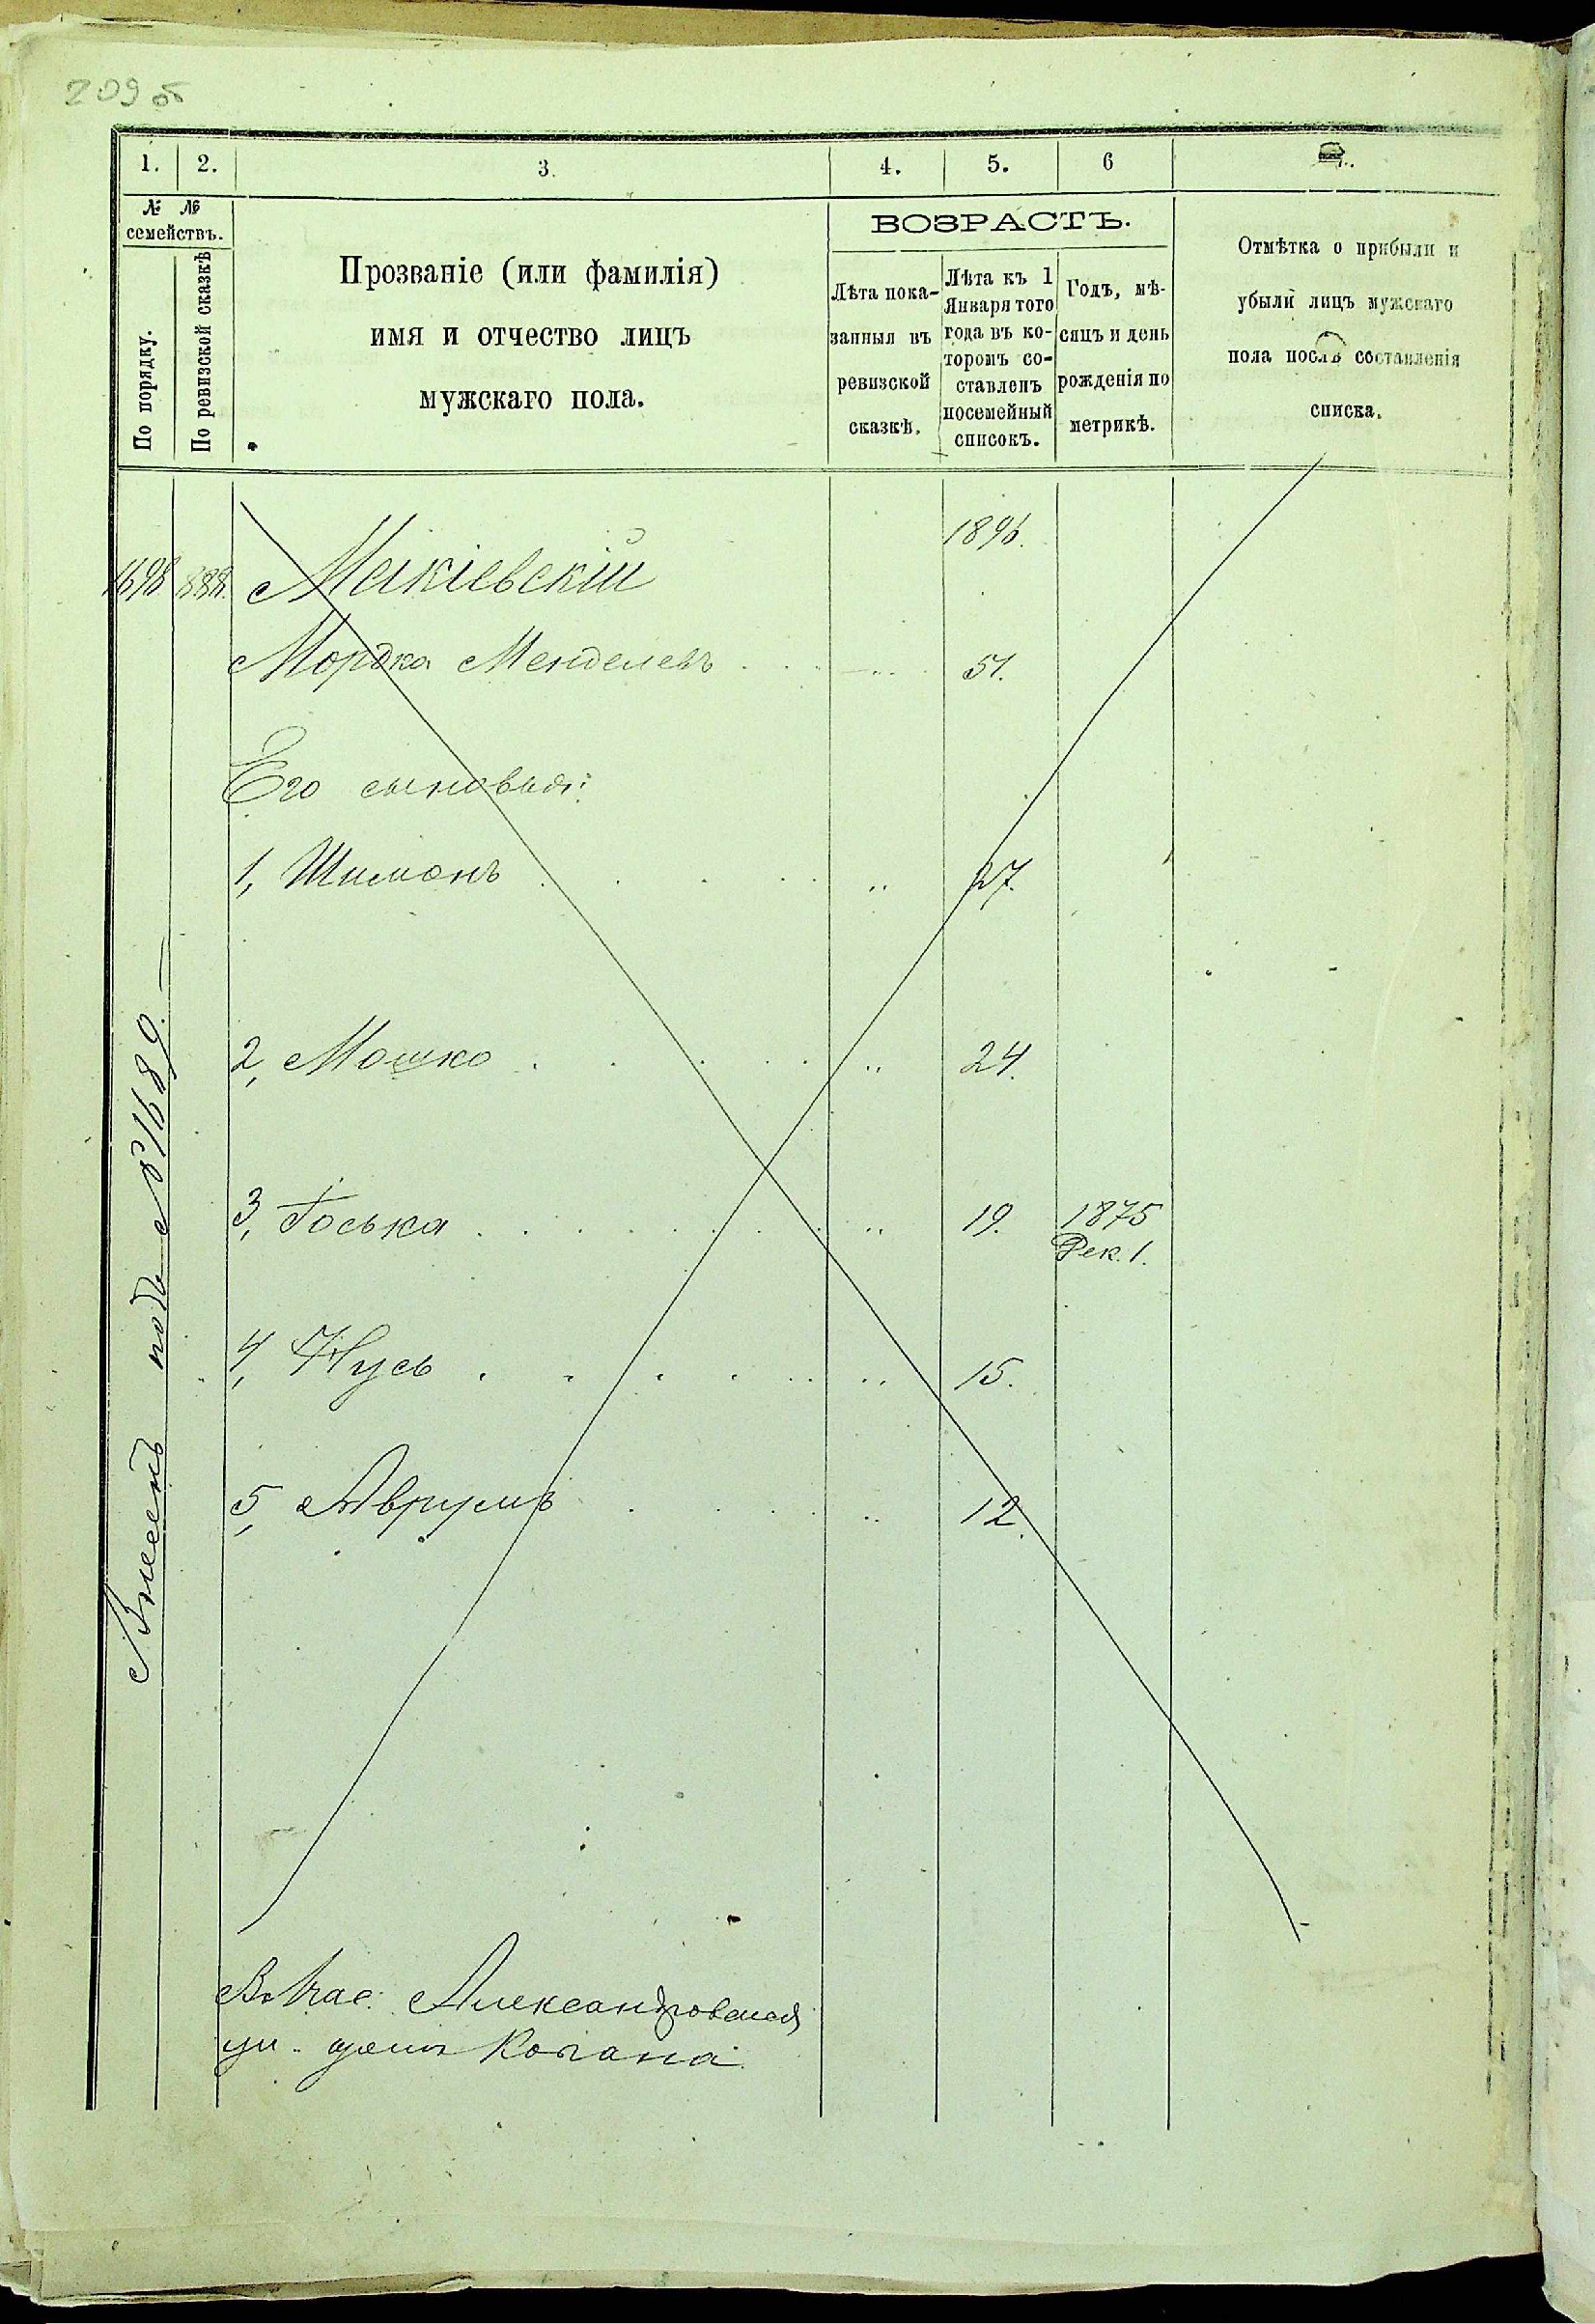 209 об
1. 2. 3. 4. 5. 6 7.
№ №
семействъ.
По порядку.
По ревизской сказкѣ
Прозваніе (или фамилія)
имя и отчество лицъ
мужскаго пола.
ВОЗРАСТЪ.
Лѣта пока-
занныя въ
ревизской
сказкѣ.
Лѣта къ 1
Января того
года въ ко-
торомъ со-
ставленъ
посемейный
списокъ.
Годъ, мѣ-
сяцъ и день
рожденія по
метрикѣ.
Отмѣтка о прибыли и
убыли лицъ мужскаго
пола послѣ составленія
списка.
1896.
1698 888. Мекіевскій
Мордка Менделевъ 51.
Его сыновья:
1, Шимонъ 27.
2, Мошко 24.
3, Іоська 19. 1875
Дек. 1.
4, Нусь 15.
5, Аврумъ 12.
Внесенъ подъ №1689.
Александровская
ул. домъ Когана